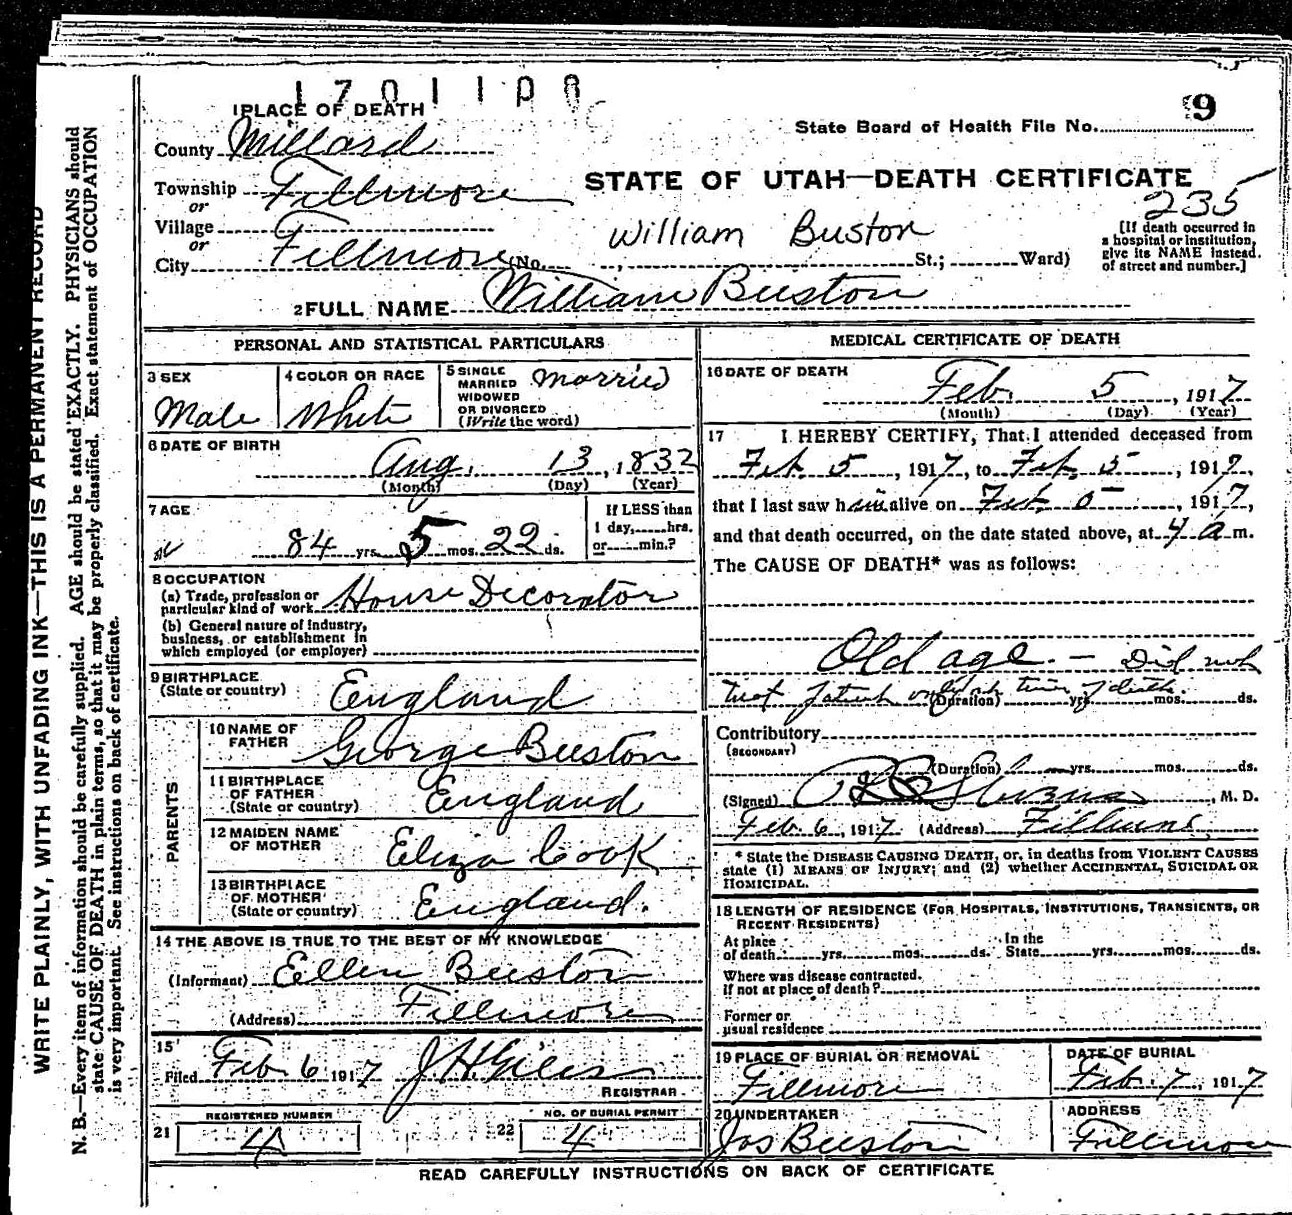 1701100
1 PLACE OF DEATH
9
State Board of Health File No.
County Millard
STATE OF UTAH—DEATH CERTIFICATE
Township Fillmore
or
235
Village
William Buston
[If death occurred in
a hospital or institution,
give its NAME instead
of street and number.]
or
City Fillmore (No. , St.; Ward)
2 FULL NAME William Beeston
PERSONAL AND STATISTICAL PARTICULARS
3 SEX
Male
4 COLOR OR RACE
White
5 SINGLE
MARRIED
WIDOWED
OR DIVORCED
(Write the word)
Married
6 DATE OF BIRTH
Aug. 13, 1832
(Month) (Day) (Year)
7 AGE
84 yrs. 5 mos. 22 ds.
If LESS than
1 day, hrs.
or min.?
8 OCCUPATION
(a) Trade, profession or
particular kind of work House Decorator
(b) General nature of industry,
business, or establishment in
which employed (or employer)
9 BIRTHPLACE
(State or country) England
PARENTS
10 NAME OF
FATHER George Beeston
11 BIRTHPLACE
OF FATHER
(State or country) England
12 MAIDEN NAME
OF MOTHER Eliza Cook
13 BIRTHPLACE
OF MOTHER
(State or country) England.
14 THE ABOVE IS TRUE TO THE BEST OF MY KNOWLEDGE
(Informant) Ellen Beeston
(Address) Fillmore
15
Filed Feb. 6 1917 J H Giles
REGISTRAR
REGISTERED NUMBER
21 4
NO. OF BURIAL PERMIT
22 4
MEDICAL CERTIFICATE OF DEATH
16 DATE OF DEATH
Feb. 5, 1917
(Month) (Day) (Year)
17 I HEREBY CERTIFY, That I attended deceased from
Feb. 5, 1917, to Feb. 5, 1917,
that I last saw him alive on Feb. 5, 1917,
and that death occurred, on the date stated above, at 4 a m.
The CAUSE OF DEATH* was as follows:
Old age. — Did not
time of death
(Duration) yrs. mos. ds.
Contributory
(SECONDARY)
(Duration) yrs. mos. ds.
(Signed) , M. D.
Feb. 6, 1917 (Address) Fillmore
* State the DISEASE CAUSING DEATH, or, in deaths from VIOLENT CAUSES
state (1) MEANS OF INJURY; and (2) whether ACCIDENTAL, SUICIDAL OR
HOMICIDAL.
18 LENGTH OF RESIDENCE (FOR HOSPITALS, INSTITUTIONS, TRANSIENTS, OR
RECENT RESIDENTS)
At place
of death yrs. mos. ds.
In the
State yrs. mos. ds.
Where was disease contracted.
if not at place of death?
Former or
usual residence
19 PLACE OF BURIAL OR REMOVAL
Fillmore
DATE OF BURIAL
Feb. 7, 1917
20 UNDERTAKER
Jos Beeston
ADDRESS
Fillmore
READ CAREFULLY INSTRUCTIONS ON BACK OF CERTIFICATE
WRITE PLAINLY, WITH UNFADING INK—THIS IS A PERMANENT RECORD
N. B.—Every item of information should be carefully supplied. AGE should be stated EXACTLY. PHYSICIANS should
state CAUSE OF DEATH in plain terms, so that it may be properly classified. Exact statement of OCCUPATION
is very important. See instructions on back of certificate.